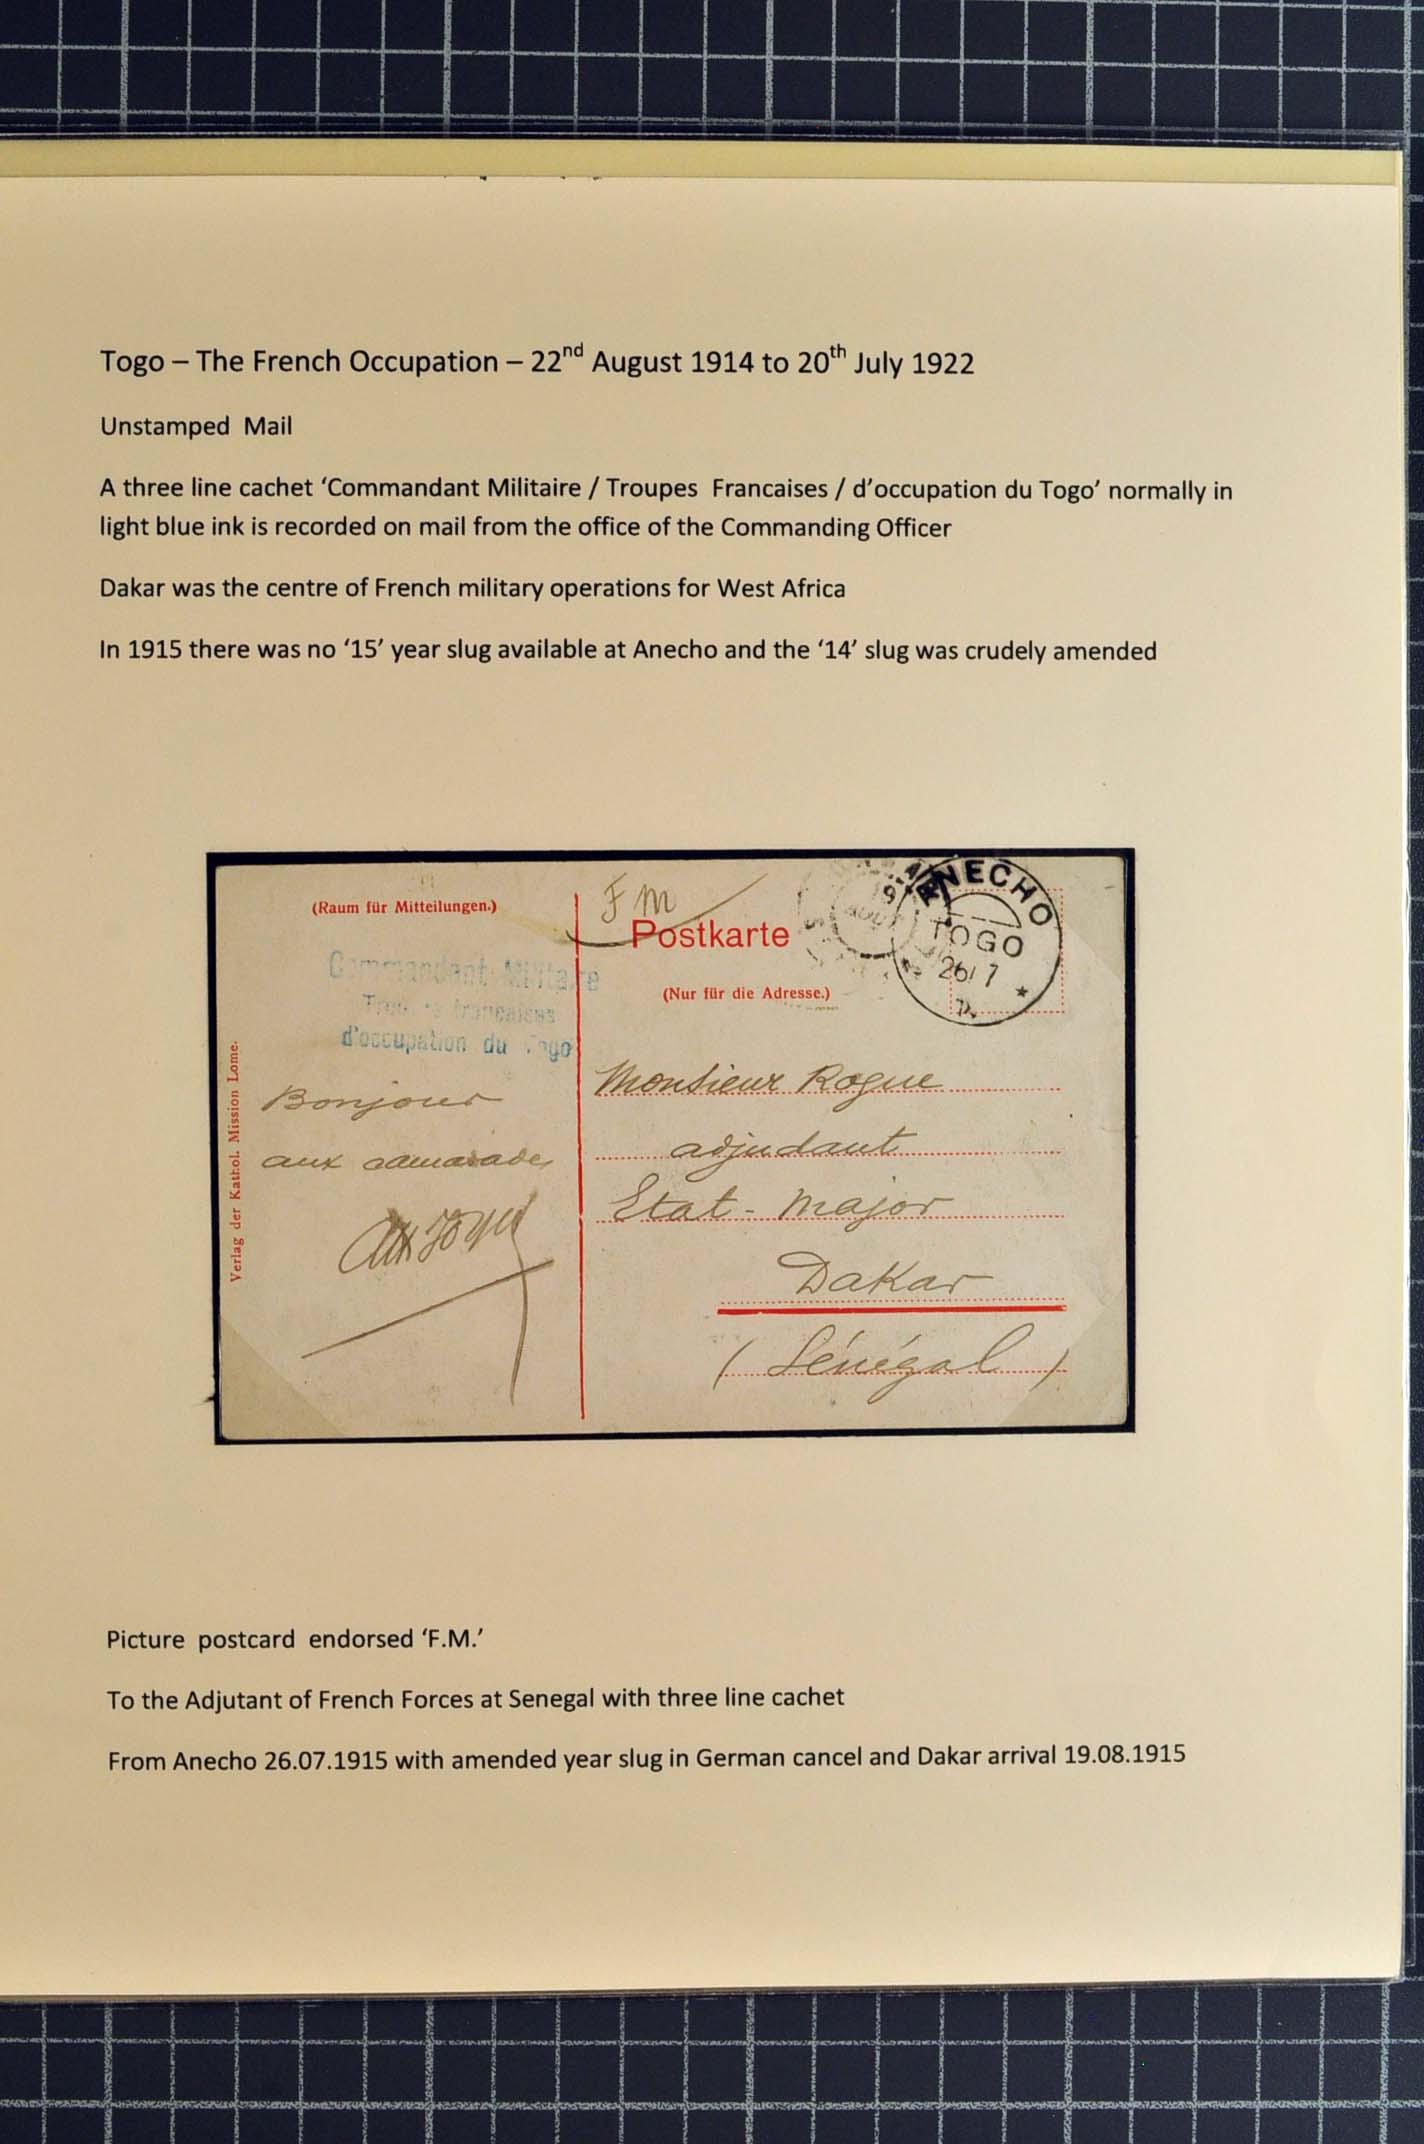 Togo – The French Occupation – 22nd August 1914 to 20th July 1922
Unstamped Mail
A three line cachet ‘Commandant Militaire / Troupes Francaises / d’occupation du Togo’ normally in
light blue ink is recorded on mail from the office of the Commanding Officer
Dakar was the centre of French military operations for West Africa
In 1915 there was no ‘15’ year slug available at Anecho and the ‘14’ slug was crudely amended
(Raum für Mitteilungen.)
Commandant Militaire
Troupes françaises
d'occupation du Togo
Verlag der Kathol. Mission Lome.
Bonjour
aux camarades
FM
Postkarte
(Nur für die Adresse.)
ANECHO
TOGO
26/7
Monsieur Rogue
adjudant
Etat-Major
Dakar
(Sénégal)
Picture postcard endorsed ‘F.M.’
To the Adjutant of French Forces at Senegal with three line cachet
From Anecho 26.07.1915 with amended year slug in German cancel and Dakar arrival 19.08.1915